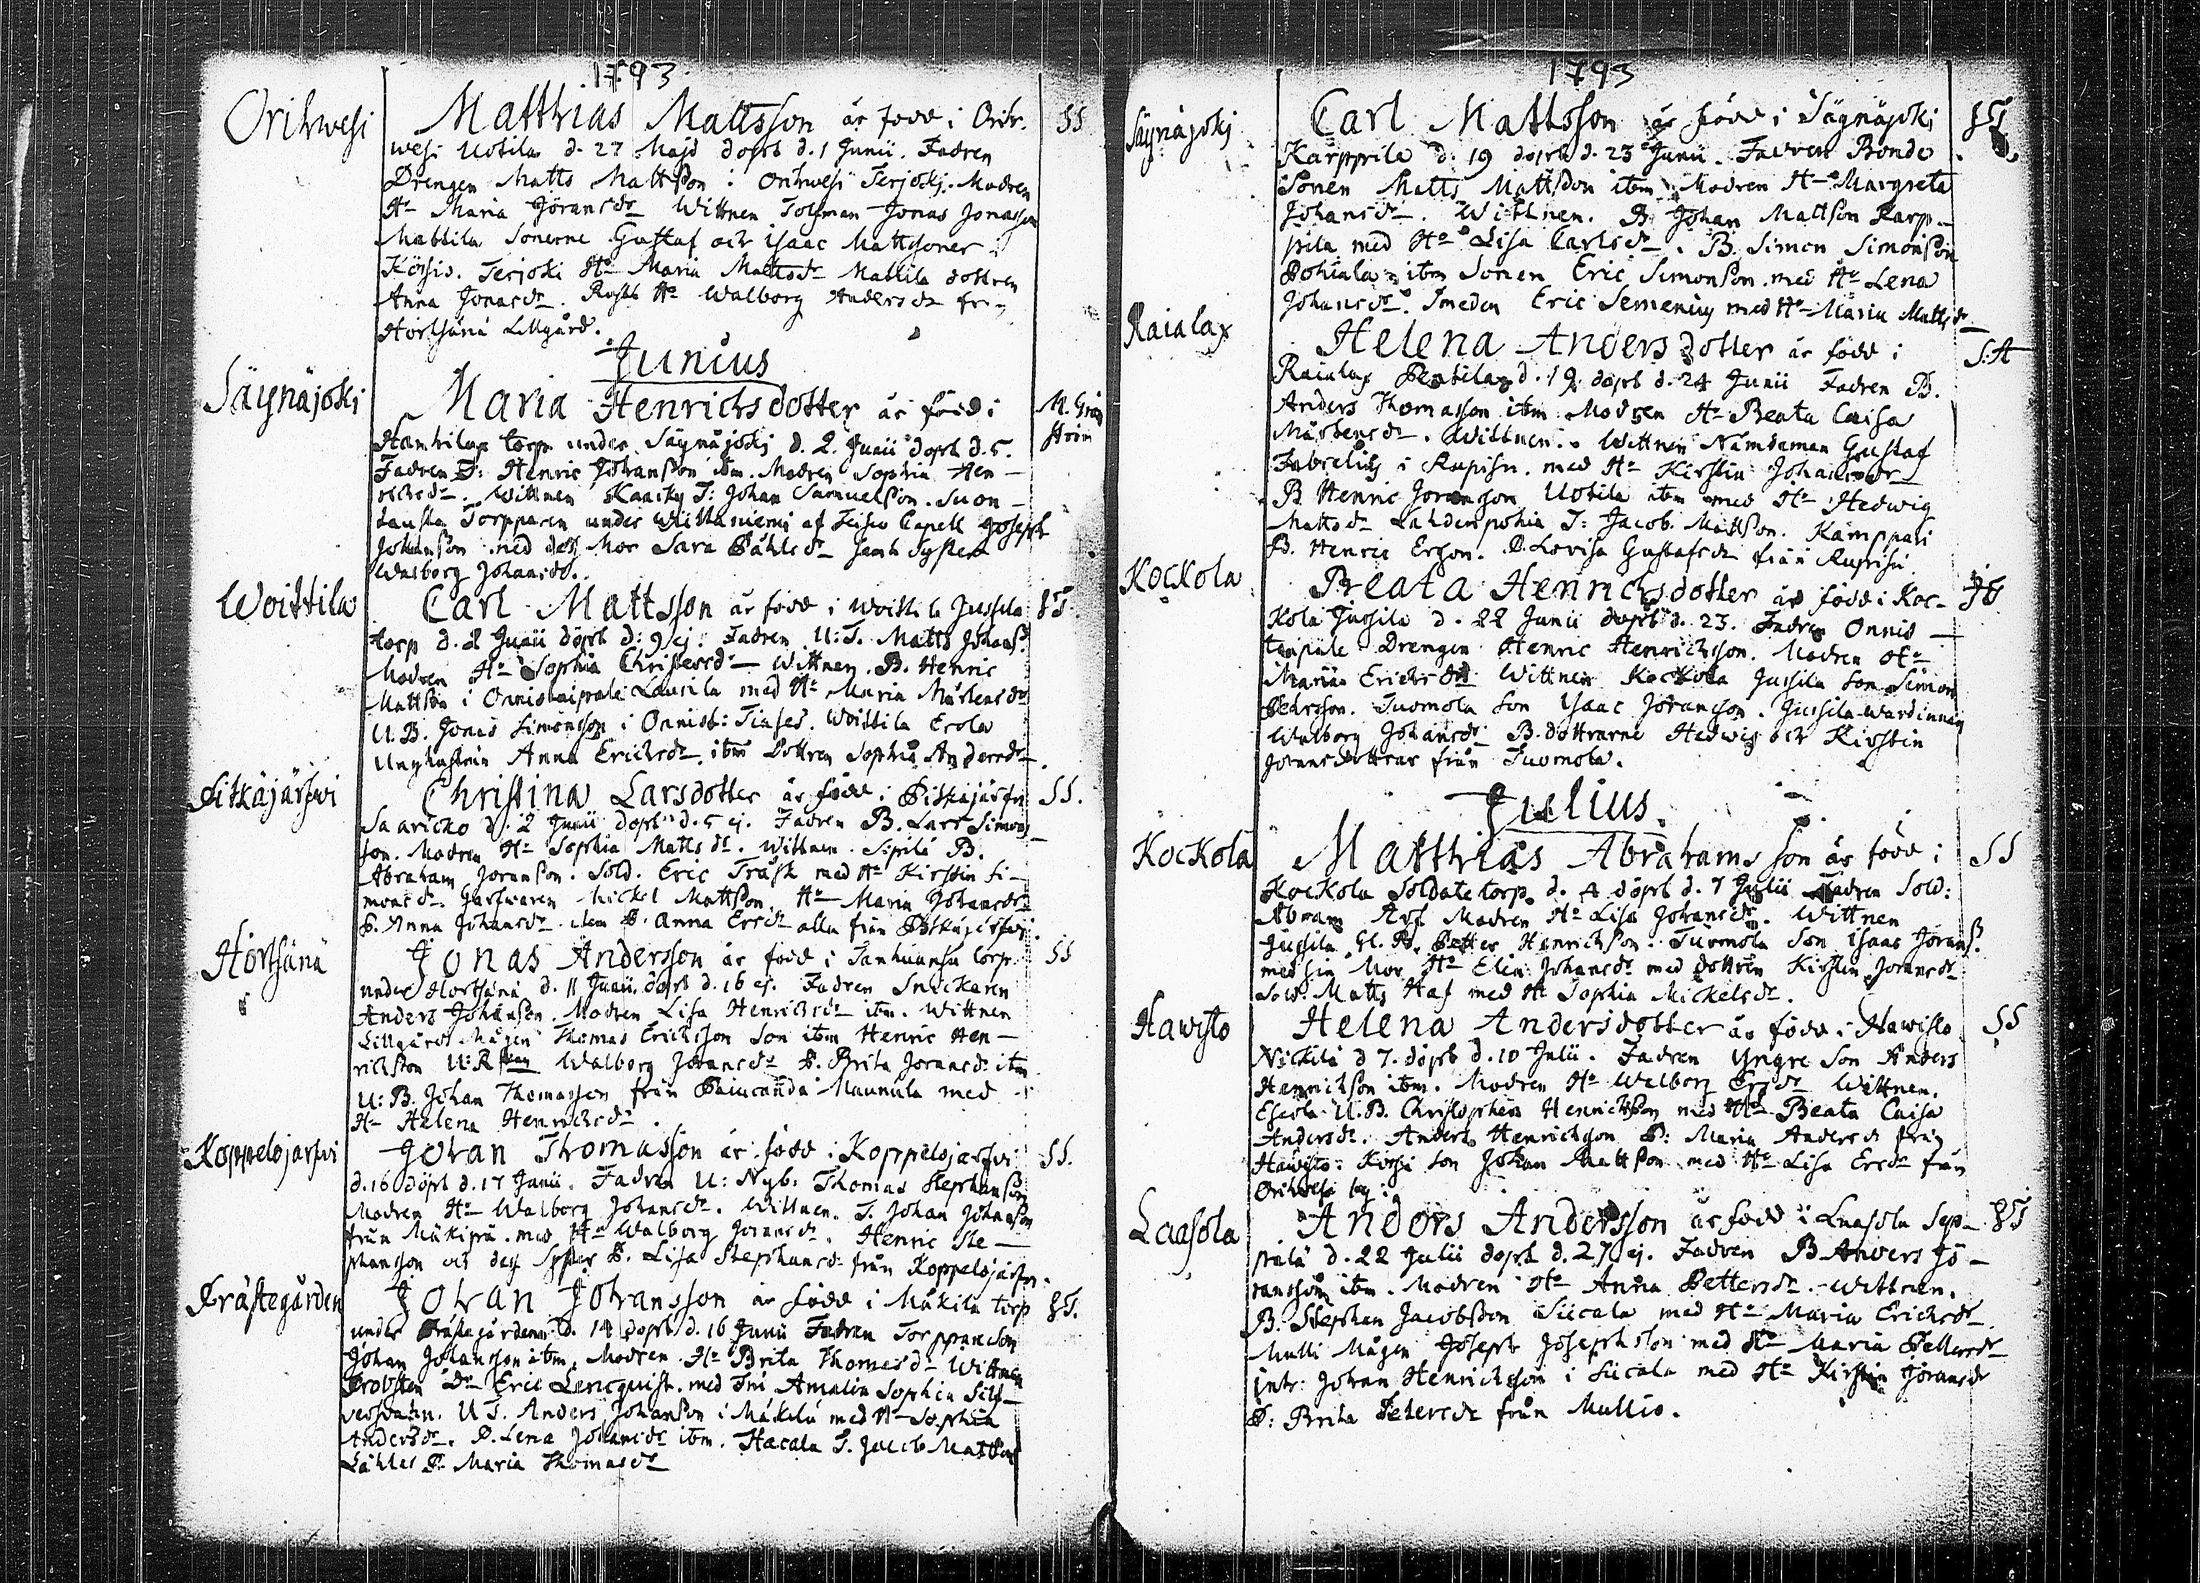 1793
Orihwesi
Matthias Mattsson är född i Orih-
SS
wesi Uotila d. 27 Maji döpt d. 1 Junii. Fadren
Drengen Matts Mattson i Orihwesi Terjoki. Modren
Ha Maria Jöransdr Wittnen Tolfman Jonas Jonasson
Mattila Sonerne Gustaf och Isaac Mattssoner i
Terjoki Ha Maria Mattsdr Mattila dottren
Anna Jonasdr. Ha Walborg Andersdr från
Hörtsänä Lillgård.
Junius
Säynäjoki
Maria Henrichsdotter är född i
M. Grå
ström
torp under Säynäjoki d. 2. Junii döpt d. 5.
Fadren T: Henric Johansson itm. Modren Sophia Hen-
richsdr. Wittnen T: Johan Samuelson. Suon-
Torpparen under Wittaniemi af Capell Joseph
Johanson med dess Mor Sara Påhlsdr samt Syster
Walborg Johansdr.
Woittila
Carl Mattsson är född i Woittila Jussila
torp d. 8 Junii döpt d: 9 ej: Fadren U: T. Matts Johanss.
Modren Ha Sophia Christersdr Wittnen. B. Henric
Mattson i Onnistaipale Lausila med Ha Maria Mårtensdr
U. B. Jonas Simonsson i Onnist: Woittila Erola
Anna Erichsdr itm Dottren Sophia Andersdr.
Pitkäjärfwi
Christina Larsdotter är född i Pitkäjärfvi
SS.
Saaricko d. 2 Junii döpt d. 5 ej. Fadren B. Lars Simons-
son. Modren Ha Sophia Mattsdr. Wittnen. Sipilä B.
Abraham Joranson. Sold. Eric Träsk med Ha Kirstin Si-
monsdr. Mickel Mattson. Ha Maria Johansdr.
P. Anna Johansdr. P. Anna Ersdr alla från Pitkäjärfwi.
Hörtsänä
Jonas Andersson är född i torp
SS
under Hortsänä d. 11 Junii döpt d. 16 ej. Fadren Snickaren
Anders Johanson. Modren Lisa Henrichsdr itm. Wittnen
Lillgård Mågen Thomas Ericksson Son itm Henric Hen-
richson Walborg Joransdr P. Brita Joransdr itm
U: B. Johan Thomasson från Maunula med
Ha Helena Henrichsdr.
Koppelojarfwi
Johan Thomasson är född i Koppelojärfwi
SS.
d. 16 döpt d. 17 Junii. Fadren U: Nyb. Thomas Stephanson
Modren Ha Walborg Johansdr. Wittnen. T. Johan Johanson
från Mäkipä. med Ha Walborg Joransdr. Henric Ste-
phanson och dess Syster P. Lisa Stephansdr från Koppelojärfvi.
Prästegården
Johan Johansson är född i Mäkilä torp
under Prästegården d. 14 döpt d. 16 Junii Fadren Torpparson
Johan Johansson itm. Modren Ha Brita Thomasdr Wittnen
Probsten Dr Eric Lencquist. med Fru Amalia Sophia Silf-
versvahn. U T. Anders Johanson i Mäkilä med Ha Sophia
Andersdr. P. Lena Johansdr itm. Hacala T. Jacob Mattson
P. Maria Thomasdr
1793
Säynäjoki
Carl Mattsson är född i Säynäjoki
Karppila d. 19 döpt d. 23 Junii. Fadren Bonde
Sonen Matts Mattsson itm. Modren Ha Margreta
Johansdr. Wittnen. B. Johan Mattson Karp-
pila med Ha Lisa Carlsdr. B. Simon Simonson
Pohiala itm Sonen Eric Simonson med Ha Lena
Johansdr. Smeden Eric Semenius med Ha Maria Mattsdr
Raialax
Helena Andersdotter är född i
S:A
Raialax Penttilas d. 19 döpt d. 24 Junii Fadren B.
Anders Thomasson itm. Modren Ha Beata Caisa
Mårtensdr. Wittnen. Wittnen Nämdeman Gustaf
i Rupisu. med Ha Kirstin Johansdr
B. Henric Joransson Uotila itm med Ha Hedwig
Mattsdr Lahdenpohia T: Jacob Mattson. Kamppari
B. Henric Erson. P. Lovisa Gustafsdr från Rupisu.
Kockola
Beata Henrichsdotter är född i Koc-
kola Jussila d. 22 Junii döpt d. 23. Fadren Onnis-
taipale Drengen Henric Henrichsson. Modren Ha
Maria Erichsdr Wittnen Kockola Jussila Son Simon
Petersson. Tuomola Son Isaac Joransson. Jussila Wärdinnan
Walborg Johansdr B. dottrarne Hedwig och Kirstin
Joransdottrar från Tuomola.
Julius.
Kockola
Matthias Abrahamsson är född i
SS
Kockola Soldatetorp. d. 4 döpt d. 7 Julii Fadren Sold:
Abram Modren Ha Lisa Johansdr. Wittnen
Jussila Petter Henrichson. Tuomola Son Isaac Joranss.
med sin Mor Ha Elin Johansdr med dottren Kirstin Joransdr
Sold. Matts Haf med Ha Sophia Mickelsdr.
Hawisto
Helena Andersdotter är född i Hawisto
SS
Nickilä d 7. döpt d. 10 Julii. Fadren Yngre Son Anders
Henrichson itm. Modren Ha Walborg Ersdr Wittnen.
Eskola U. B. Christopher Henrichson med Ha Beata Caisa
Andersdr. Anders Henrichson P: Maria Andersdr från
Hawisto: Son Johan Mattson med Ha Lisa Ersdr från
Orihwesi by:
Laasola
Anders Andersson är född i Laasola Sep-
pälä d. 22 Julii döpt d. 27 ej. Fadren B Anders Jö-
ransson itm. Modren Ha Anna Pettersdr. Wittnen.
B. Stephan Jacobsson Siicala med Ha Maria Erichsdr
Mulli Mågen Joseph Josephsson med Ha Maria Pettersdr
Johan Henricksson i Siicala med Ha Kirstin Joransdr
P: Brita Petersdr från Mullis.